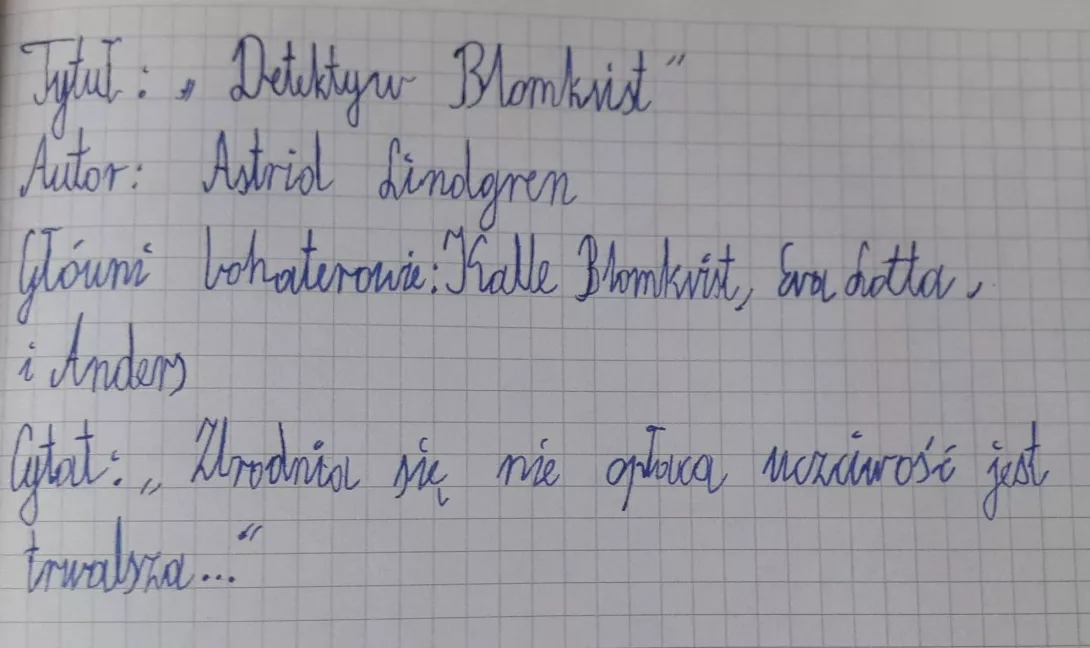 Tytuł: „Detektyw Blomkvist"
Autor: Astrid Lindgren
Główni bohaterowie: Kalle Blomkvist, Eva Lotta,
i Anders
Cytat: „Zbrodnia się nie opłaca uczciwość jest
trwalsza..."